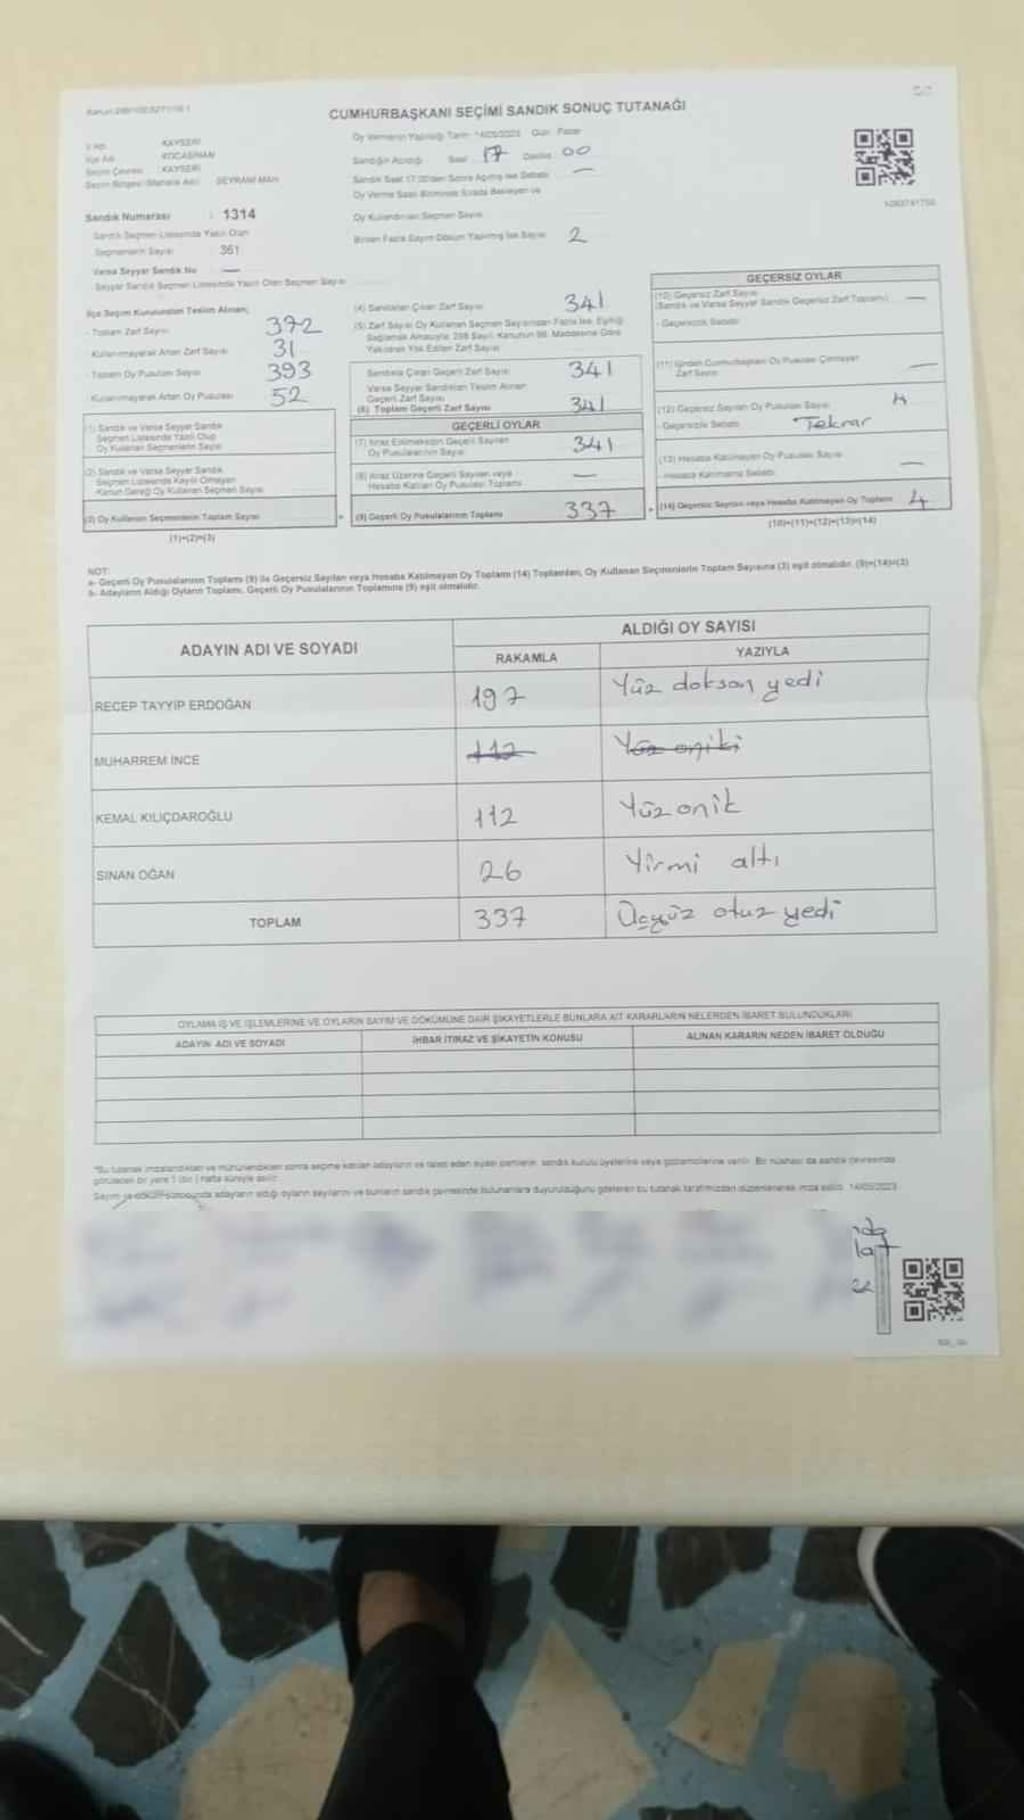 CUMHURBAŞKANI SEÇİMİ SANDIK SONUÇ TUTANAĞI
Oy Vermenin Yapıldığı Tarih 14/05/2023 Gün Pazar
İl Adı KAYSERİ
İlçe Adı KOCASİNAN
Seçim Çevresi : KAYSERİ
BEYRANI MAH
Sandığın Açıldığı Saat 17 Dakika 00
Sandık Saat 17.00'den Sonra Açılmış İse Sebebi —
Oy Verme Saati Bitiminde Sırada Bekleyen ve
Oy Kullandırılan Seçmen Sayısı
Birden Fazla Sayım Döküm Yapılmış İse Sayısı 2
Sandık Numarası : 1314
Sandık Seçmen Listesinde Yazılı Olan
Seçmenlerin Sayısı : 361
Varsa Seyyar Sandık No —
Seyyar Sandık Seçmen Listesinde Yazılı Olan Seçmen Sayısı
İlçe Seçim Kurulundan Teslim Alınan;
- Toplam Zarf Sayısı 372
- Kullanılmayarak Artan Zarf Sayısı 31
- Toplam Oy Pusulası Sayısı 393
- Kullanılmayarak Artan Oy Pusulası 52
(1) Sandık ve Varsa Seyyar Sandık
Seçmen Listesinde Yazılı Olup
Oy Kullanan Seçmenlerin Sayısı
(2) Sandık ve Varsa Seyyar Sandık
Seçmen Listesinde Kayıtlı Olmayan
Kanun Gereği Oy Kullanan Seçmen Sayısı
(3) Oy Kullanan Seçmenlerin Toplam Sayısı
(1)+(2)=(3)
(4) Sandıktan Çıkan Zarf Sayısı 341
(5) Zarf Sayısı Oy Kullanan Seçmen Sayısından Fazla İse, Eşitliği
Sağlamak Amacıyla, 298 Sayılı Kanunun 98. Maddesine Göre
Yakılarak Yok Edilen Zarf Sayısı
Sandıkta Çıkan Geçerli Zarf Sayısı 341
Varsa Seyyar Sandıktan Teslim Alınan
Geçerli Zarf Sayısı
(6) Toplam Geçerli Zarf Sayısı 341
GEÇERLİ OYLAR
(7) İtiraz Edilmeksizin Geçerli Sayılan
Oy Pusulalarının Sayısı 341
(8) İtiraz Üzerine Geçerli Sayılan veya
Hesaba Katılan Oy Pusulası Toplamı —
(9) Geçerli Oy Pusulalarının Toplamı 337
GEÇERSİZ OYLAR
(10) Geçersiz Zarf Sayısı
(Sandık ve Varsa Seyyar Sandık Geçersiz Zarf Toplamı) —
- Geçersizlik Sebebi
(11) İçinden Cumhurbaşkanı Oy Pusulası Çıkmayan
Zarf Sayısı —
(12) Geçersiz Sayılan Oy Pusulası Sayısı 4
- Geçersizlik Sebebi Tekrar
(13) Hesaba Katılmayan Oy Pusulası Sayısı —
- Hesaba Katılmama Sebebi
(14) Geçersiz Sayılan veya Hesaba Katılmayan Oy Toplamı 4
(10)+(11)+(12)+(13)=(14)
NOT:
a- Geçerli Oy Pusulalarının Toplamı (9) ile Geçersiz Sayılan veya Hesaba Katılmayan Oy Toplamı (14) Toplamları, Oy Kullanan Seçmenlerin Toplam Sayısına (3) eşit olmalıdır. (9)+(14)=(3)
b- Adayların Aldığı Oyların Toplamı, Geçerli Oy Pusulalarının Toplamına (9) eşit olmalıdır.
ADAYIN ADI VE SOYADI
ALDIĞI OY SAYISI
RAKAMLA YAZIYLA
RECEP TAYYİP ERDOĞAN 197 Yüz doksan yedi
MUHARREM İNCE 112 Yüz oniki
KEMAL KILIÇDAROĞLU 112 Yüz onik
SİNAN OĞAN 26 Yirmi altı
TOPLAM 337 Üçyüz otuz yedi
OYLAMA İŞ VE İŞLEMLERİNE VE OYLARIN SAYIM VE DÖKÜMÜNE DAİR ŞİKAYETLERLE BUNLARA AİT KARARLARIN NELERDEN İBARET BULUNDUKLARI
ADAYIN ADI VE SOYADI İHBAR İTİRAZ VE ŞİKAYETİN KONUSU ALINAN KARARIN NEDEN İBARET OLDUĞU
*Bu tutanak imzalandıktan ve mühürlendikten sonra seçime katılan adayların ve talep eden siyasi partilerin, sandık kurulu üyelerine veya gözlemcilerine verilir. Bir nüshası da sandık çevresinde
görülecek bir yere 1 (bir) hafta süreyle asılır.
Seçim ve döküm sonucunda adayların aldığı oyların sayılarını ve bunların sandık çevresinde bulunanlara duyurulduğunu gösteren bu tutanak tarafımızdan düzenlenerek imza edildi. 14/05/2023